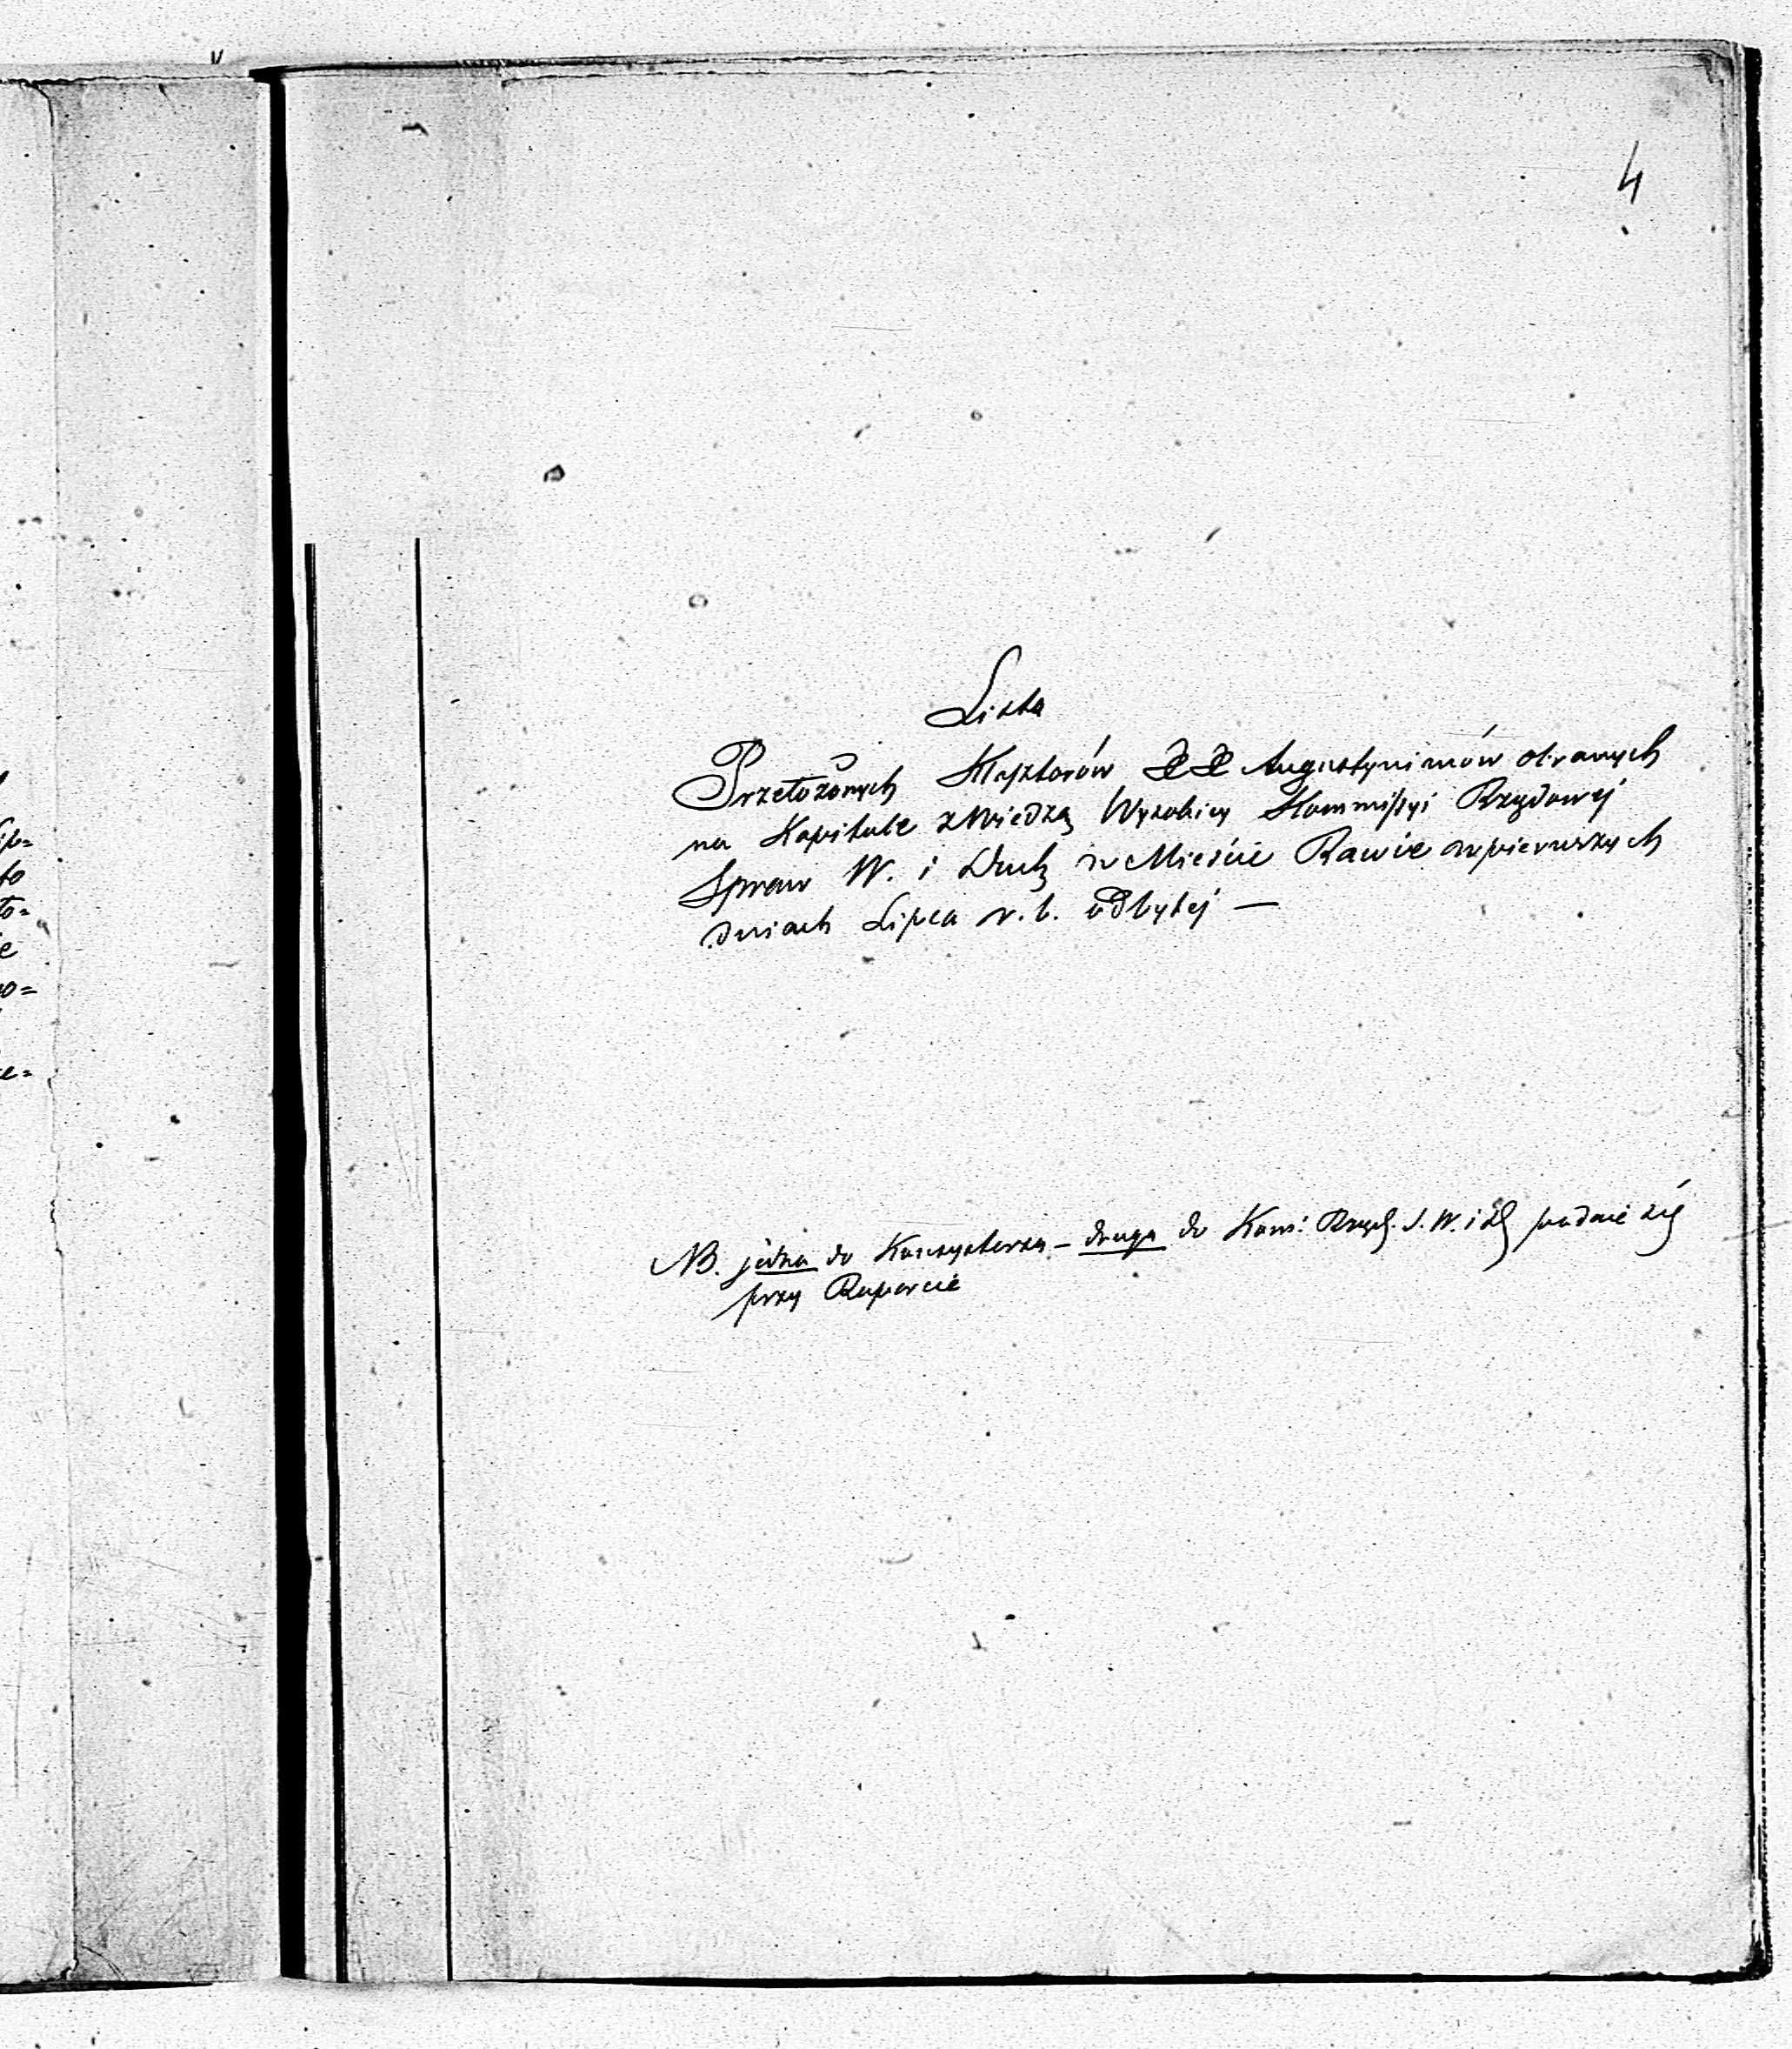 4
Lista
Przełożonych Klasztorów XX Augustynianów obranych
na Kapitule z Wiedzą Wysokiey Kommissyi Rządowej
Spraw W. i Duch. w Mieście Rawie w pierwszych
dniach Lipca r. b. odbytej —
NB. jedna do Konsystorza – druga do Kom: Rząd. S. W. i D. poda się
przy Raporcie